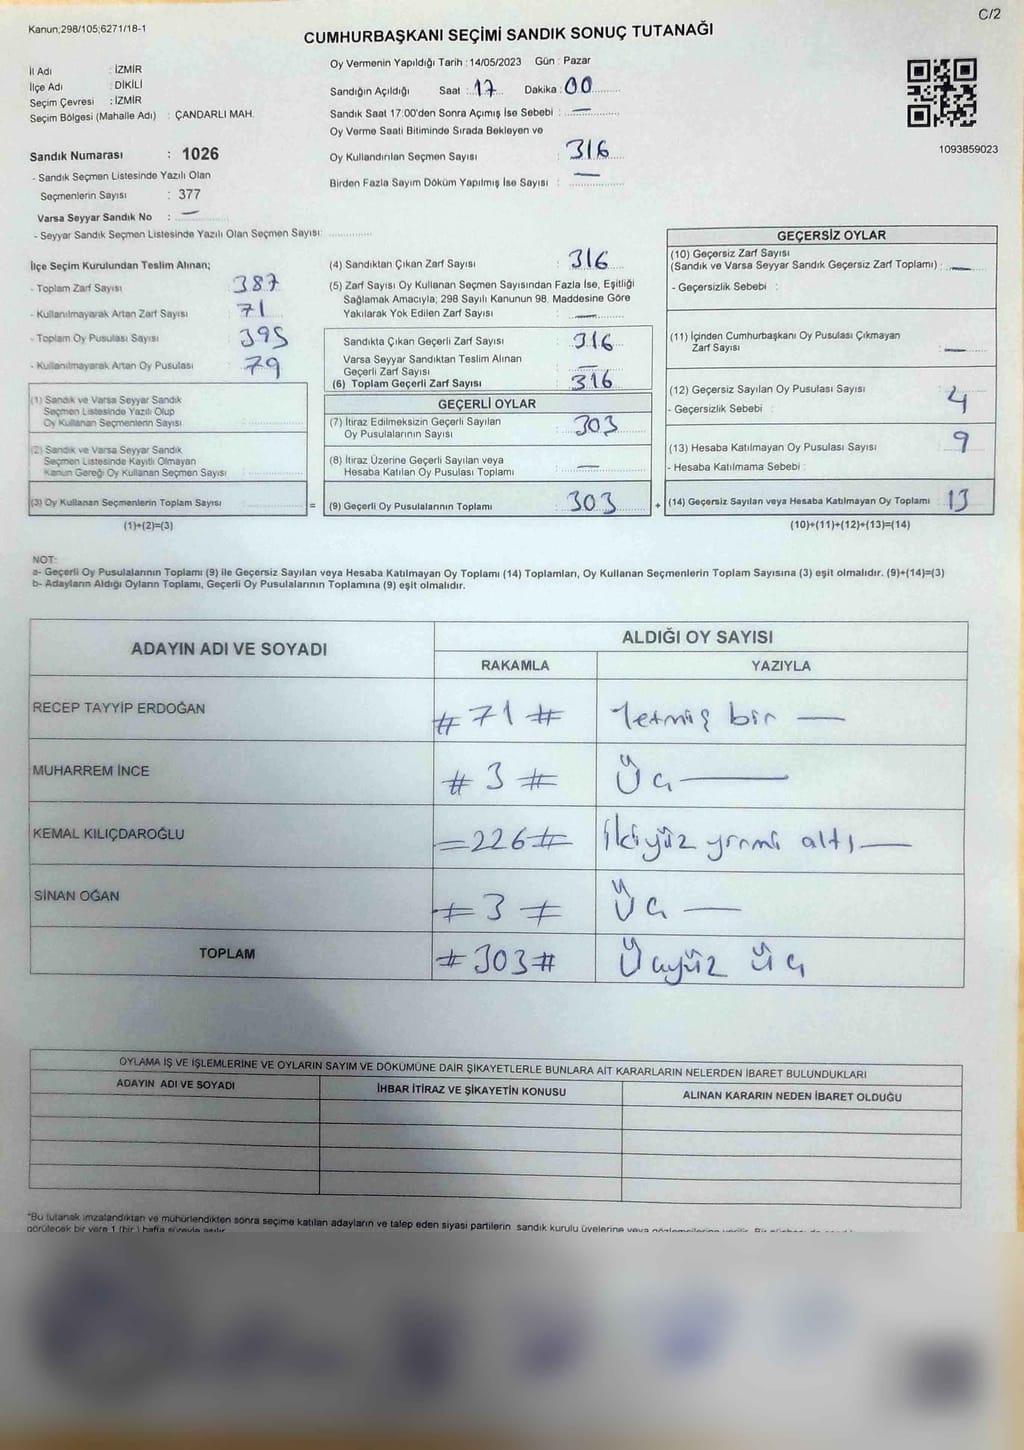 Kanun;298/105;6271/18-1
C/2
CUMHURBAŞKANI SEÇİMİ SANDIK SONUÇ TUTANAĞI
İl Adı : İZMİR
İlçe Adı : DİKİLİ
Seçim Çevresi : İZMİR
Seçim Bölgesi (Mahalle Adı) : ÇANDARLI MAH.
Sandık Numarası : 1026
- Sandık Seçmen Listesinde Yazılı Olan
Seçmenlerin Sayısı : 377
Varsa Seyyar Sandık No : —
- Seyyar Sandık Seçmen Listesinde Yazılı Olan Seçmen Sayısı: ............
Oy Vermenin Yapıldığı Tarih : 14/05/2023 Gün : Pazar
Sandığın Açıldığı Saat : 17 Dakika : 00
Sandık Saat 17:00'den Sonra Açımış İse Sebebi : —
Oy Verme Saati Bitiminde Sırada Bekleyen ve
Oy Kullandırılan Seçmen Sayısı : 316
Birden Fazla Sayım Döküm Yapılmış İse Sayısı : —
1093859023
İlçe Seçim Kurulundan Teslim Alınan;
- Toplam Zarf Sayısı 387
- Kullanılmayarak Artan Zarf Sayısı 71
- Toplam Oy Pusulası Sayısı 395
- Kullanılmayarak Artan Oy Pusulası 79
(1) Sandık ve Varsa Seyyar Sandık
Seçmen Listesinde Yazılı Olup
Oy Kullanan Seçmenlerin Sayısı
(2) Sandık ve Varsa Seyyar Sandık
Seçmen Listesinde Kayıtlı Olmayan
Kanun Gereği Oy Kullanan Seçmen Sayısı
(3) Oy Kullanan Seçmenlerin Toplam Sayısı =
(1)+(2)=(3)
(4) Sandıktan Çıkan Zarf Sayısı : 316
(5) Zarf Sayısı Oy Kullanan Seçmen Sayısından Fazla İse, Eşitliği
Sağlamak Amacıyla; 298 Sayılı Kanunun 98. Maddesine Göre
Yakılarak Yok Edilen Zarf Sayısı : —
Sandıkta Çıkan Geçerli Zarf Sayısı 316
Varsa Seyyar Sandıktan Teslim Alınan
Geçerli Zarf Sayısı —
(6) Toplam Geçerli Zarf Sayısı 316
GEÇERLİ OYLAR
(7) İtiraz Edilmeksizin Geçerli Sayılan
Oy Pusulalarının Sayısı 303
(8) İtiraz Üzerine Geçerli Sayılan veya
Hesaba Katılan Oy Pusulası Toplamı —
(9) Geçerli Oy Pusulalarının Toplamı 303 +
GEÇERSİZ OYLAR
(10) Geçersiz Zarf Sayısı
(Sandık ve Varsa Seyyar Sandık Geçersiz Zarf Toplamı) : —
- Geçersizlik Sebebi :
(11) İçinden Cumhurbaşkanı Oy Pusulası Çıkmayan
Zarf Sayısı —
(12) Geçersiz Sayılan Oy Pusulası Sayısı 4
- Geçersizlik Sebebi :
(13) Hesaba Katılmayan Oy Pusulası Sayısı 9
- Hesaba Katılmama Sebebi :
(14) Geçersiz Sayılan veya Hesaba Katılmayan Oy Toplamı 13
(10)+(11)+(12)+(13)=(14)
NOT:
a- Geçerli Oy Pusulalarının Toplamı (9) ile Geçersiz Sayılan veya Hesaba Katılmayan Oy Toplamı (14) Toplamları, Oy Kullanan Seçmenlerin Toplam Sayısına (3) eşit olmalıdır. (9)+(14)=(3)
b- Adayların Aldığı Oyların Toplamı, Geçerli Oy Pusulalarının Toplamına (9) eşit olmalıdır.
ADAYIN ADI VE SOYADI ALDIĞI OY SAYISI
RAKAMLA YAZIYLA
RECEP TAYYİP ERDOĞAN # 71 # Yetmiş bir —
MUHARREM İNCE # 3 # Üç —
KEMAL KILIÇDAROĞLU =226# İkiyüz yirmi altı —
SİNAN OĞAN # 3 # Üç —
TOPLAM #303# Üçyüz üç
OYLAMA İŞ VE İŞLEMLERİNE VE OYLARIN SAYIM VE DÖKÜMÜNE DAİR ŞİKAYETLERLE BUNLARA AİT KARARLARIN NELERDEN İBARET BULUNDUKLARI
ADAYIN ADI VE SOYADI İHBAR İTİRAZ VE ŞİKAYETİN KONUSU ALINAN KARARIN NEDEN İBARET OLDUĞU
*Bu tutanak imzalandıktan ve mühürlendikten sonra seçime katılan adayların ve talep eden siyasi partilerin sandık kurulu üyelerine veya
görülecek bir yere 1 (bir ) hafta süreyle asılır.